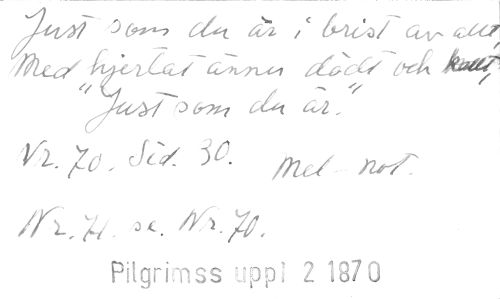 Just som du är i brist av allt,
Med hjertat ännu dödt och kallt,
"Just som du är."
Nr. 70. Sid. 30. Mel-not.
Nr. 71. se. Nr. 70.
Pilgrimss uppl 2 1870